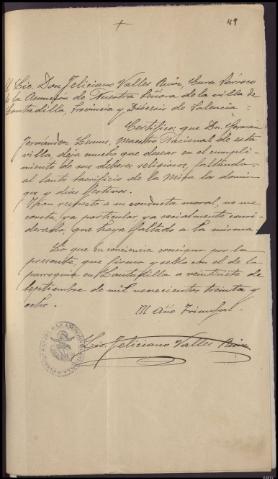 49
Lic. Don Feliciano Valles Ruiz, Cura Párroco
de la Asuncion de Nuestra Señora de la villa de
Santadilla, Provincia y Diócesis de Palencia:
Certifico: que Dn. Germán
Fernández Lums, Maestro Nacional de esta
villa, deja mucho que desear en el cumpli-
miento de sus deberes religiosos, faltando
al Santo Sacrificio de la Misa los domin-
gos y dias festivos.
respecto a su conducta moral, no me
consta, ya particular ya socialmente consi-
derado, que haya faltado a la misma.
Lo que en conciencia consigno por la
presente que firmo y sello con el de la
parroquia en a veintiseis de
Septiembre de mil novecientos treinta y
ocho.
III Año Triunfal.
Lic. Feliciano Valles Ruiz